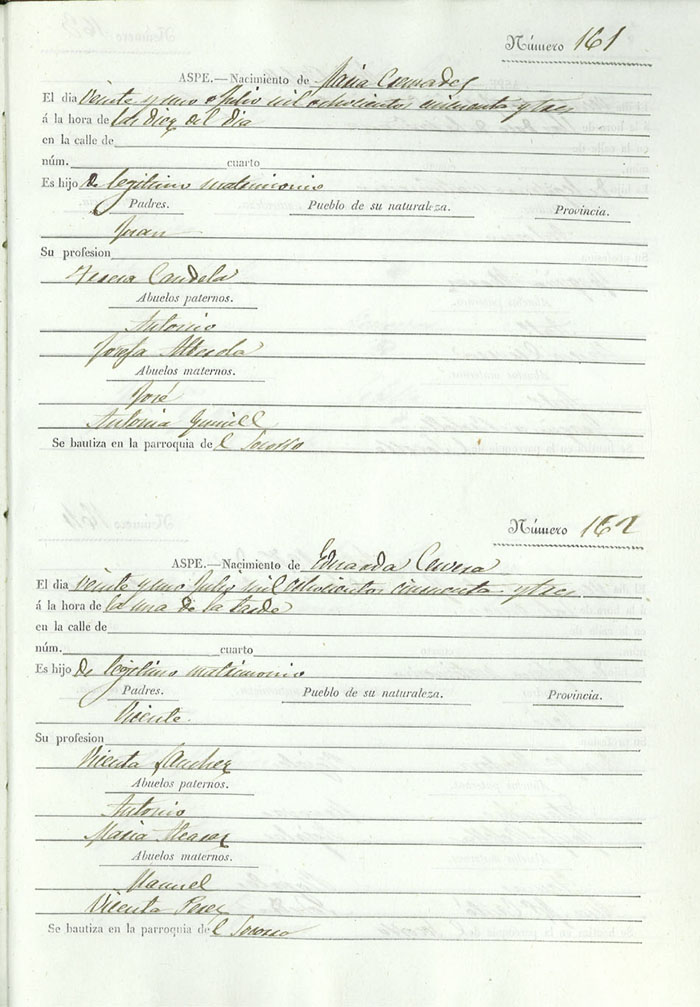 Número 161
ASPE.—Nacimiento de Maria
El dia veinte y uno Julio mil ochocientos cincuenta y tres
á la hora de las diez del dia
en la calle de
núm. cuarto
Es hijo de legitimo matrimonio
Padres. Pueblo de su naturaleza. Provincia.
Juan
Su profesion
Teresa Candela
Abuelos paternos.
Antonio
Josefa
Abuelos maternos.
José
Antonia
Se bautiza en la parroquia del Socorro
Número 162
ASPE.—Nacimiento de Eduarda Cervera
El dia veinte y uno Julio mil ochocientos cincuenta y tres
á la hora de la una de la tarde
en la calle de
núm. cuarto
Es hijo de legitimo matrimonio
Padres. Pueblo de su naturaleza. Provincia.
Vicente
Su profesion
Vicenta Sanchez
Abuelos paternos.
Antonio
Maria
Abuelos maternos.
Manuel
Vicenta Perez
Se bautiza en la parroquia del Socorro